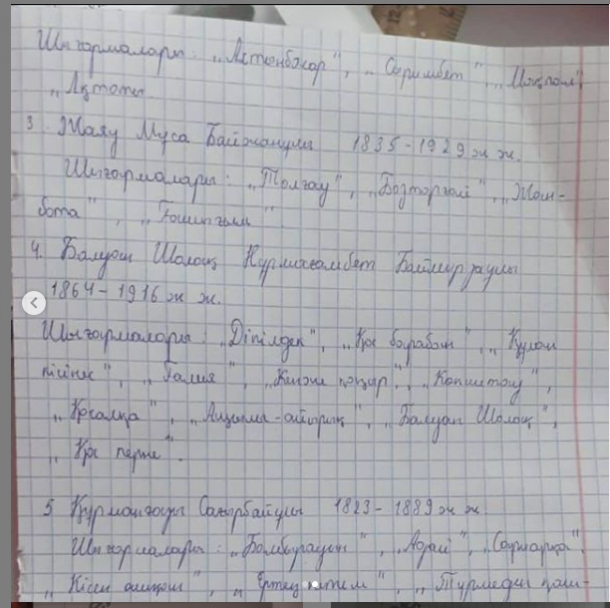 Шығармалары: „Ләтипбәкөр", „Сырымбет", „Мақпал",
„Ақтоты
3. Жаяу Мұса Байжанұлы 1835-1929 ж ж.
Шығармалары: „Толғау", „Бозторғай", „Жон-
бота", „Ғашығым".
4. Балуан Шолақ Нұрмағамбет Баймырзаұлы
1864-1916 ж ж.
Шығармалары: „Дікілдек", „Қос барабан", „Құлан
кісінес", „Ғалия", „Кенже қоңыр", „Көкшетау",
„Қосалқа", „Ащыма-айырық", „Балуан Шолақ",
„Қос перне".
5 Құрманғазы Сағырбайұлы 1823-1889 ж ж
Шығармалары: „Балбырауын", „Адай", „Сарыарқа".
„Кісен ашқан", „Ертең кетем", „Түрмеден қаш-